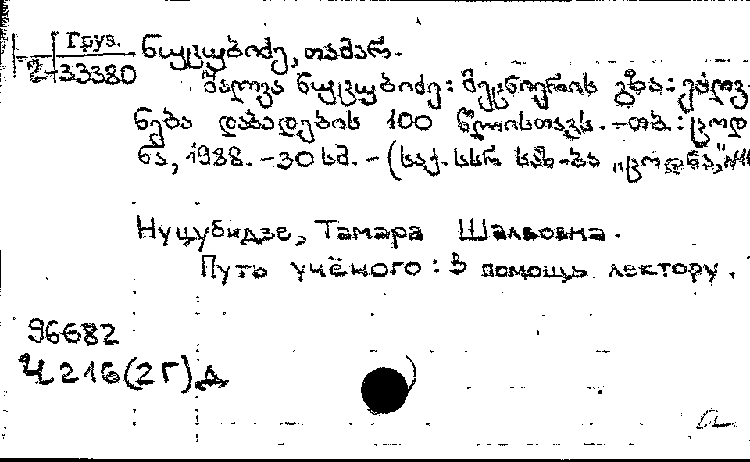 Груз.
2-33380
ნუცუბიძე, თამარ.
შალვა ნუცუბიძე: მეცნიერის გზა: ეძღვ-
ნება დაბადების 100 წლისთავს. -თბ.: ცოდ
ნა, 1988. -30 სმ. - (საქ. სსრ საზ-ბა „ცოდნა,"
Нуцубидзе, Тамара Шалвовна.
Путь учёного: В помощь лектору.
96682
Ч 216(2Г)д